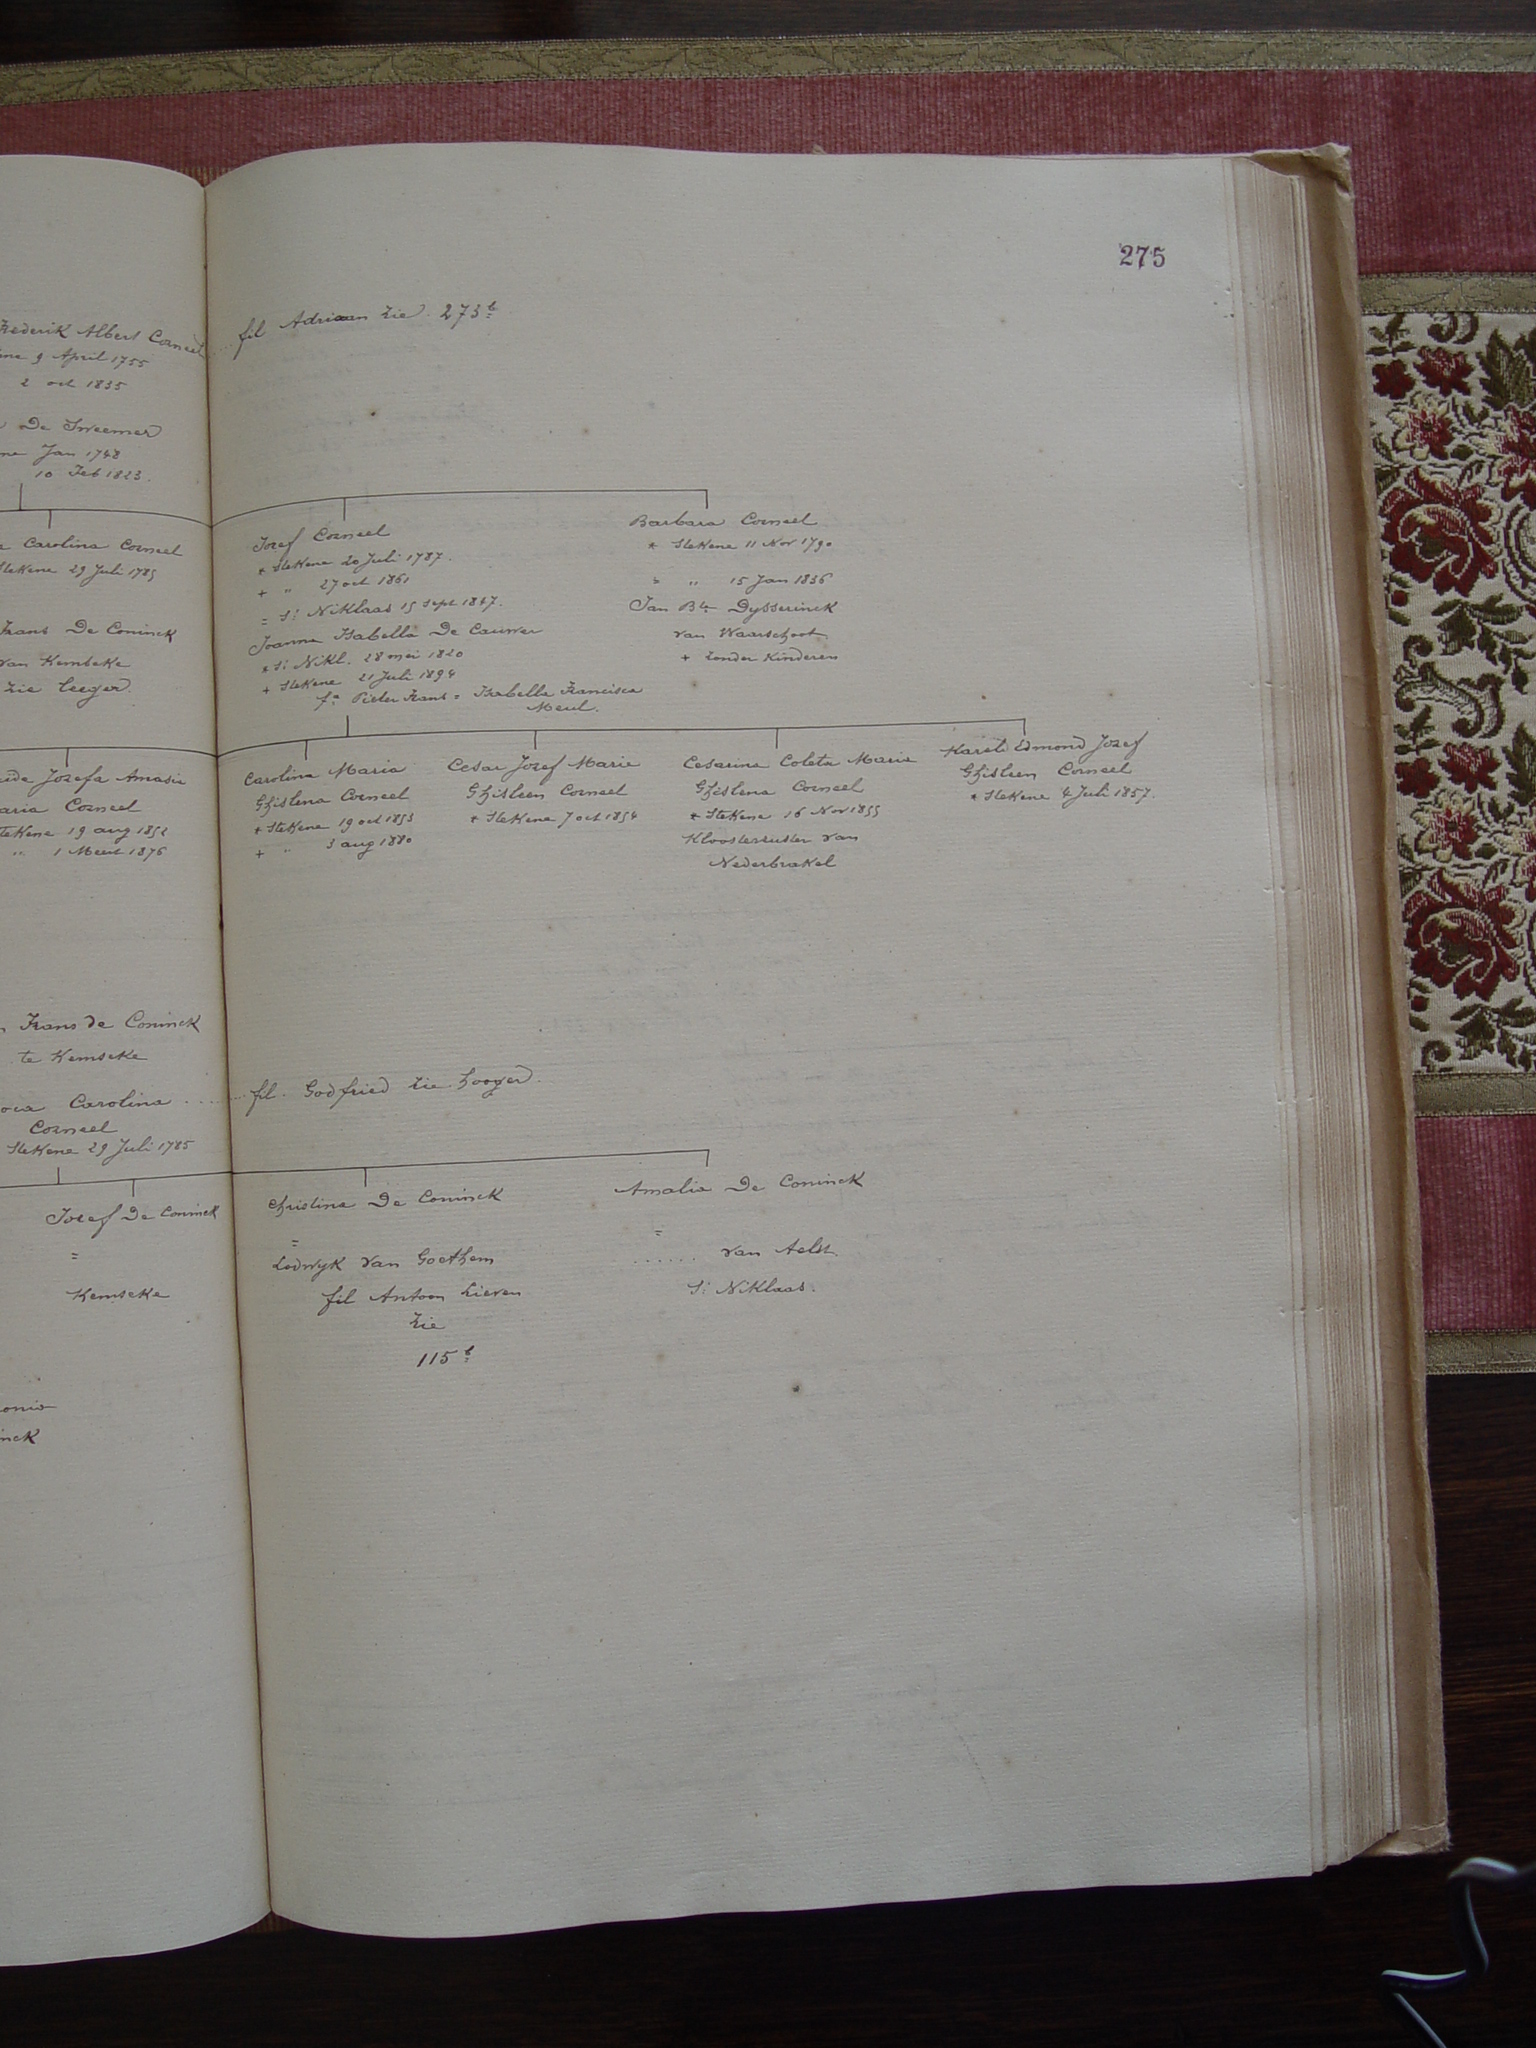 275
Frederik Albert Corneel
9 April 1755
2 oct 1835
De Sweemer
Jan 1748
10 Feb 1823.
fil Adriaan zie 273b
Carolina Corneel
Stekene 29 Juli 1785
Frans De Coninck
van Kembeke
zie leeger.
Jozef Corneel
* Stekene 20 Juli 1787.
+ " 27 oct 1861
= St Niklaas 15 Sept 1847.
Joanna Isabella De Cauwer
* St Nikl. 28 mei 1820
+ Stekene 21 Juli 1894
fa Pieter Frans = Isabella Francisca
Meul.
Barbara Corneel
* Stekene 11 Nov 1790
" 15 Jan 1836
Jan Bte Dysserinck
van Waarschoot
+ zonder Kinderen
Jozefa Amasie
Maria Corneel
Stekene 19 aug 1852
" 1 Meert 1876
Carolina Maria
Ghislena Corneel
* Stekene 19 oct 1853
+ " 3 aug 1880
Cesar Jozef Marie
Ghisleen Corneel
* Stekene 7 oct 1854
Cesarina Coleta Marie
Ghislena Corneel
* Stekene 16 Nov 1855
Kloosterzuster van
Nederbrakel
Karel Edmond Jozef
Ghisleen Corneel
* Stekene 4 Juli 1857.
Frans de Coninck
te Kemseke
Carolina
Corneel
Stekene 29 Juli 1785
fil. Godfried zie hooger.
Jozef De Coninck
=
Kemseke
Christina De Coninck
=
Lodwyk van Goethem
fil Antoon Lieven
zie
115b
Amalia De Coninck
=
...... van Aelst
St Niklaas.